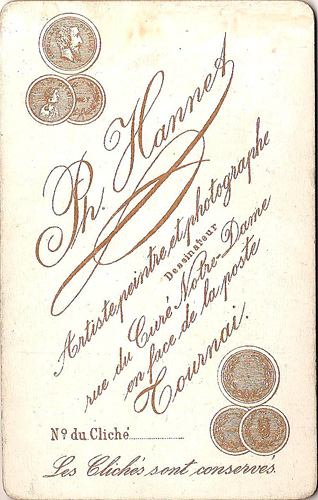 Ph. Hannet
Artiste peintre et photographe
Dessinateur
rue du Curé Notre-Dame
en face de la poste
Tournai.
Nº du Cliché
Les Clichés sont conservés.